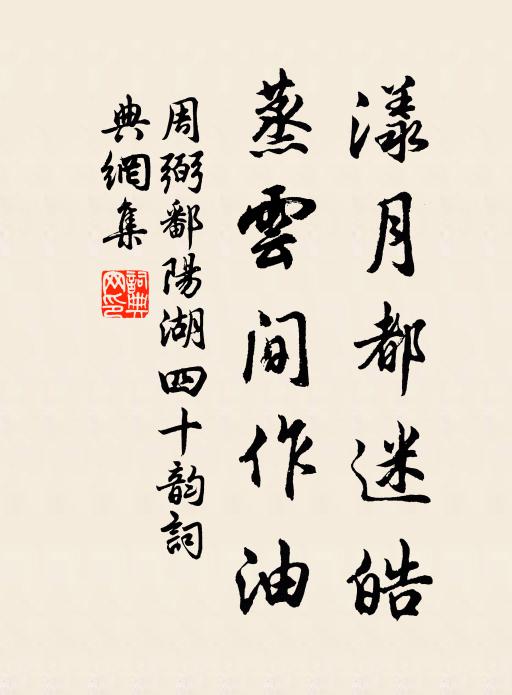 漾月都迷皓
蒸雲間作油
周弼鄱陽湖四十韵詞
典網集
詞典网印